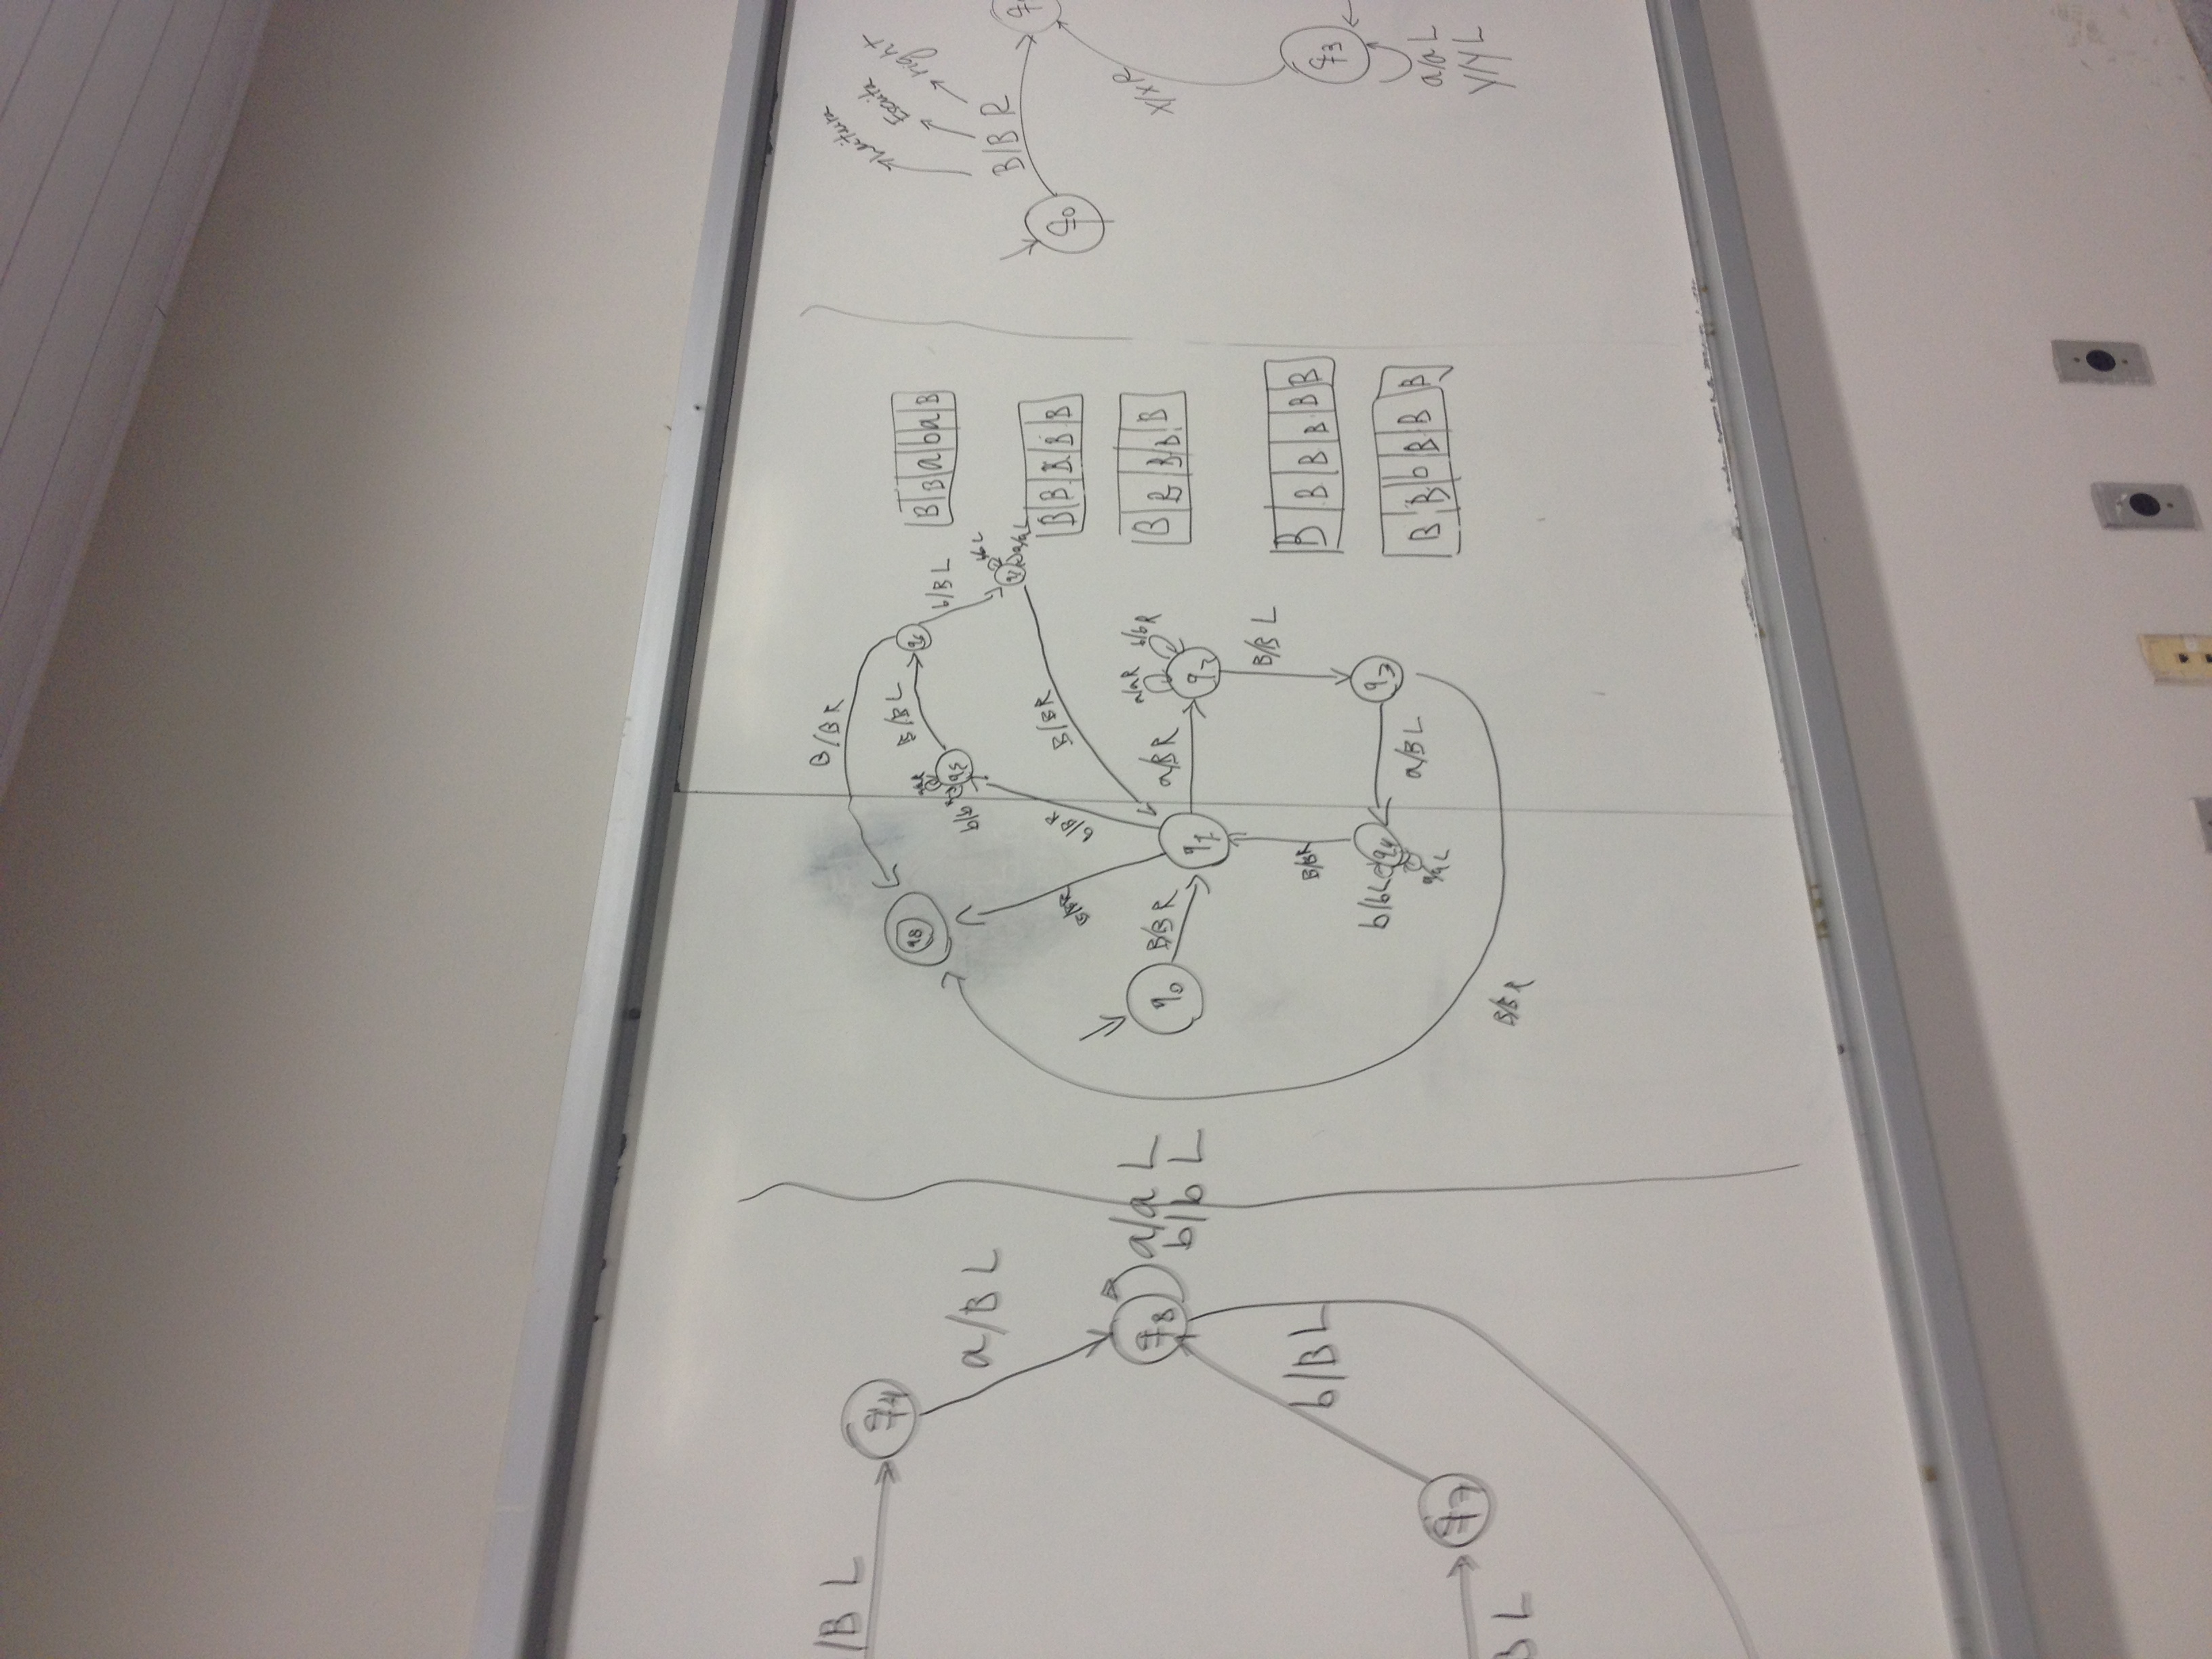 /B L
q4
a/B L
q8
a/a L
b/b L
b/B L
q7
B L
B/B R
q8
B/B L
q5
b/b
q6
b/B L
a/a L
B/B R
b/B R
B/B R
q0
B/B R
q1
a/B R
a/a R
b/b R
q2
B/B L
B/B R
b/b L
q4
a/a L
a/B L
q3
B/B R
B B a b a B
B B B B B
B B B B B
B B B B B B
B B b B B B
Leitura
Escrita
right
B/B R
q0
X/X R
q3
a/a L
Y/Y L